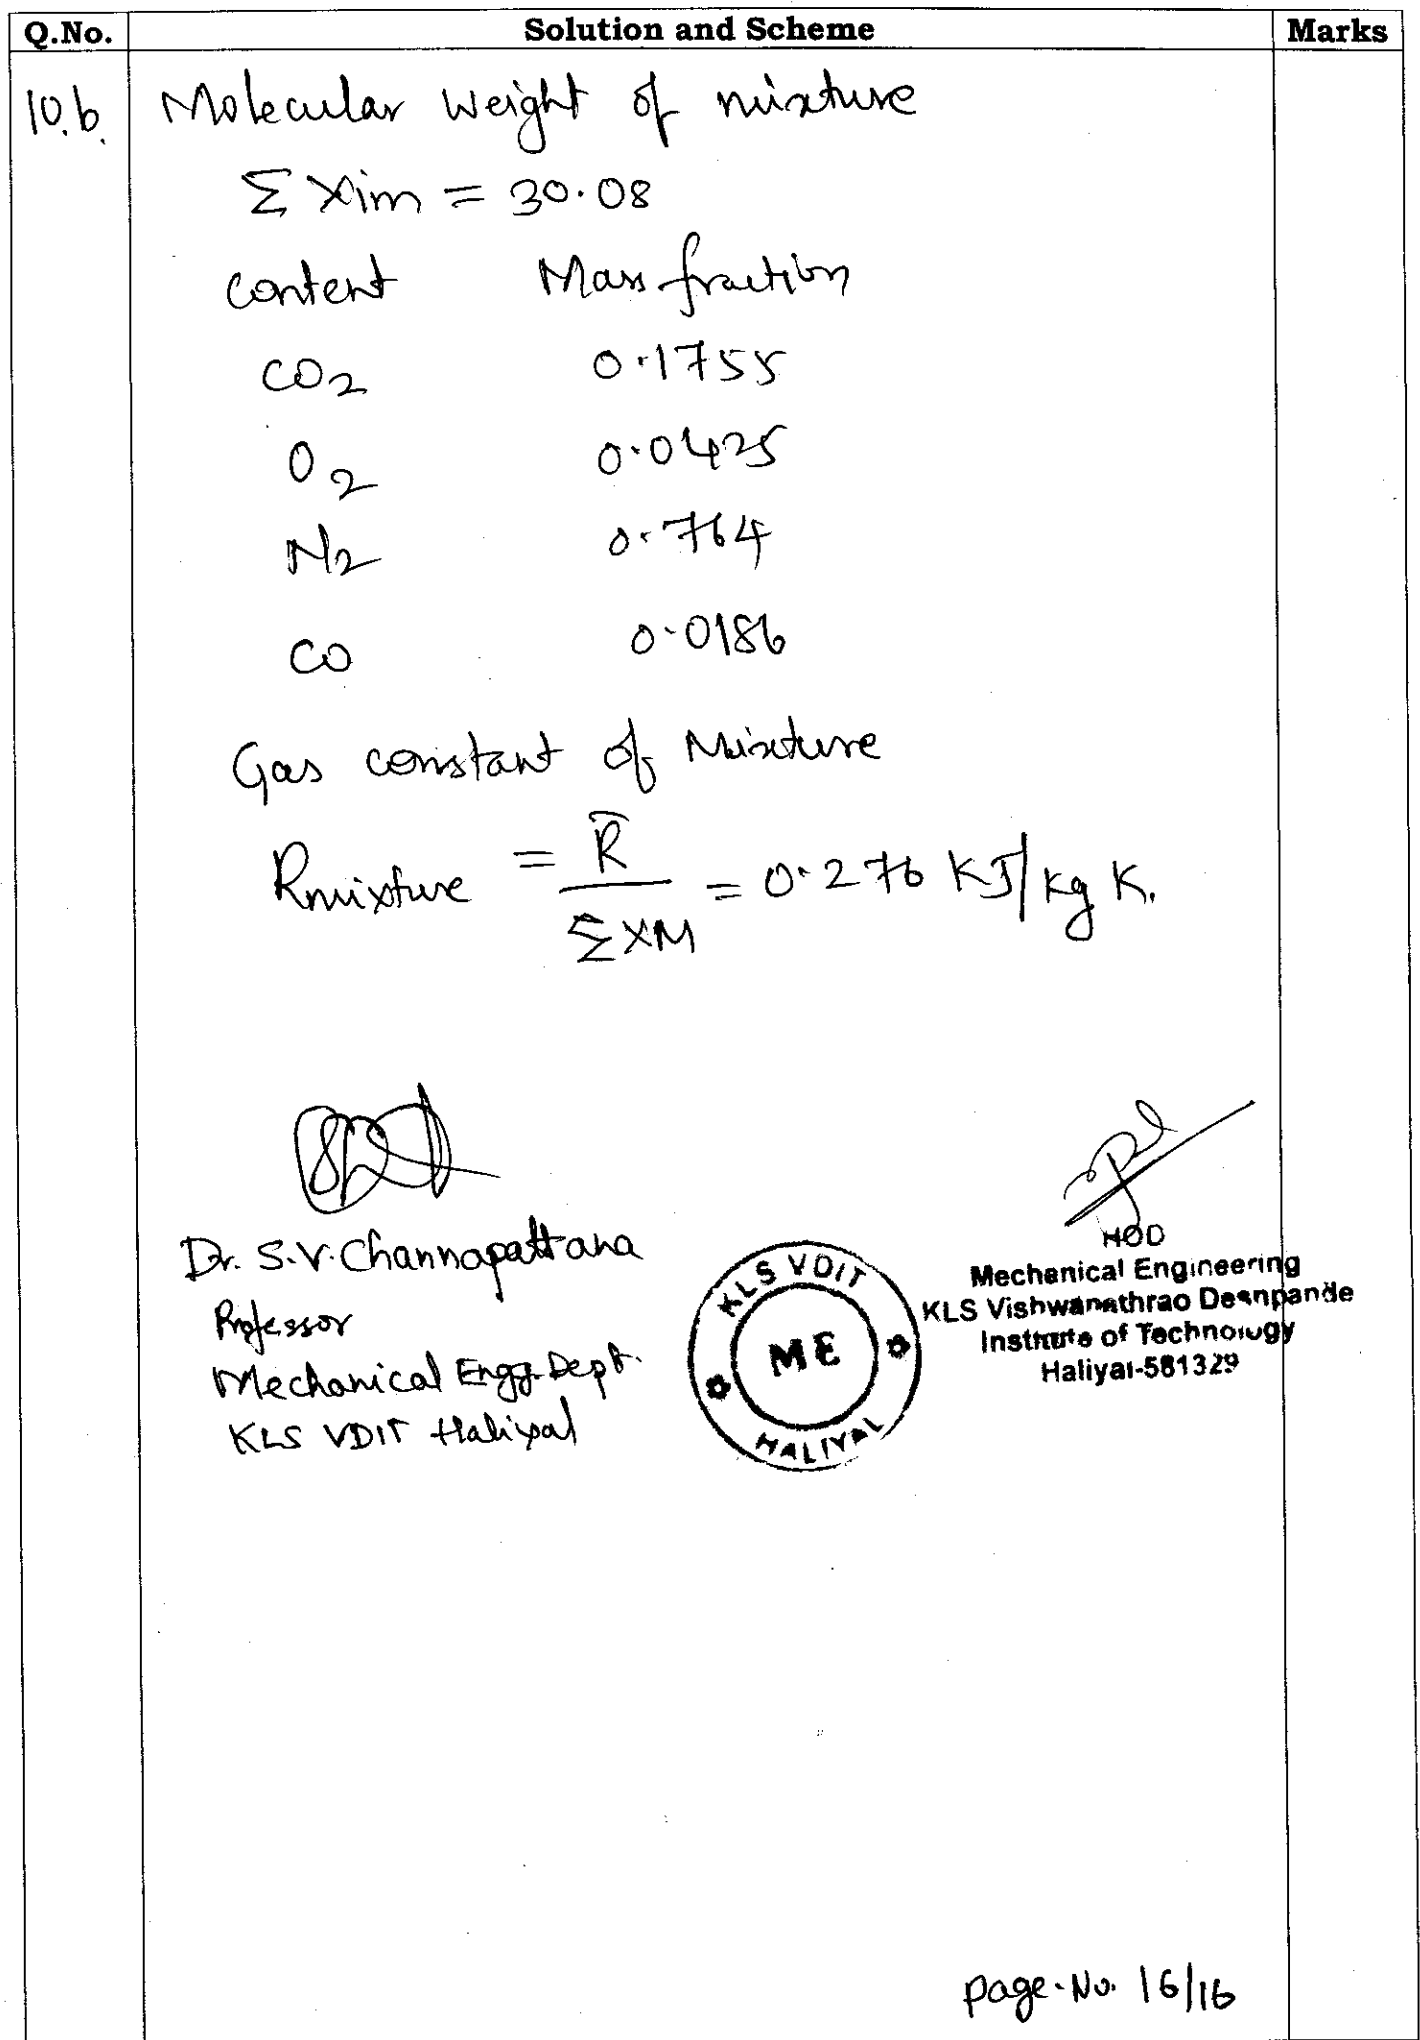 Q.No. Solution and Scheme Marks
10.b. Molecular Weight of mixture
Σ Xim = 30.08
Content Mass fraction
CO2 0.1755
O2 0.0425
N2 0.764
CO 0.0186
Gas constant of Mixture
Rmixture = R̄ / ΣXM = 0.276 KJ/Kg K.
Dr. S.V. Channapattana
Professor
Mechanical Engg. Dept.
KLS VDIT Haliyal
KLS VDIT
ME
HALIYAL
HOD
Mechanical Engineering
KLS Vishwanathrao Deshpande
Institute of Technology
Haliyal-581329
Page.No. 16/16